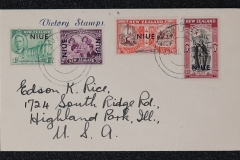 Victory Stamps.
NIUE NIUE NIUE NIUE
NEW ZEALAND
Edson K. Rice,
1724 South Ridge Rd.,
Highland Park, Ill.,
U. S. A.